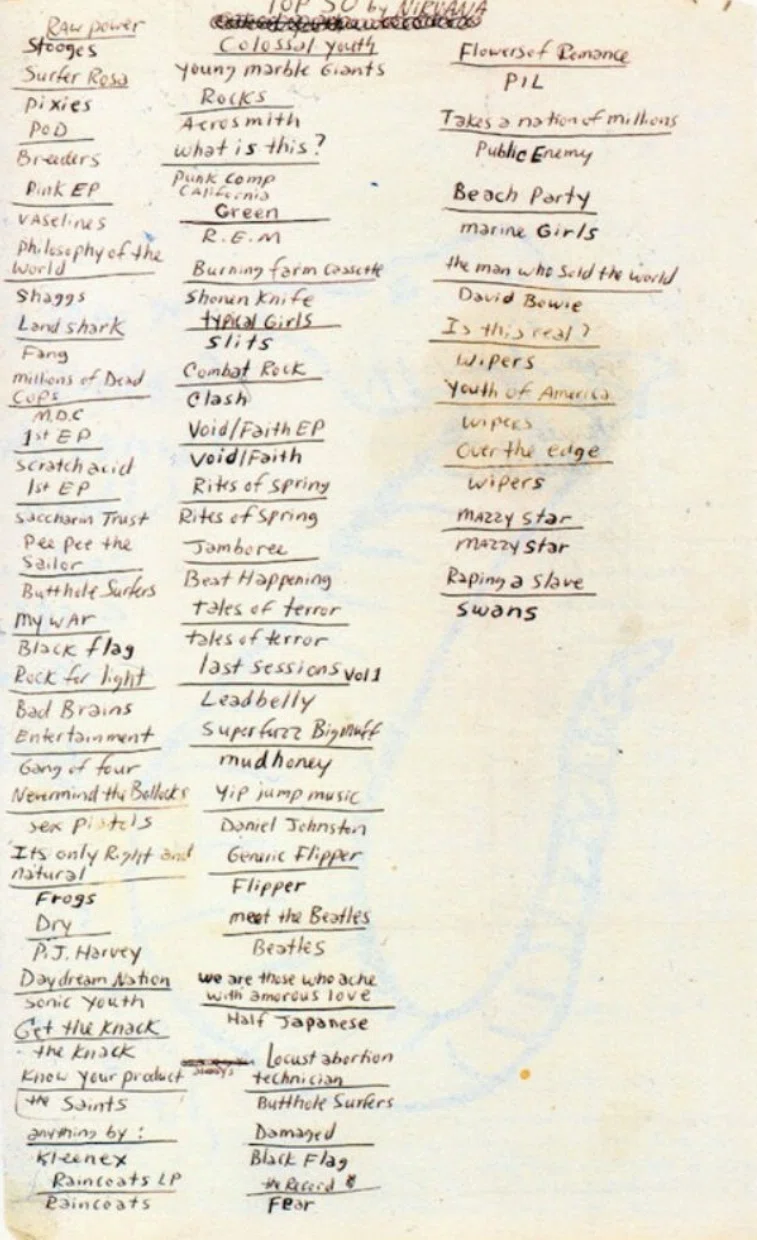 TOP 50 by NIRVANA
RAW power
Stooges
Surfer Rosa
pixies
POD
Breeders
Pink EP
VASelines
Philosophy of the
World
Shaggs
Land shark
Fang
millions of Dead
COPS
M.D.C
1st EP
scratch acid
1st EP
Saccharin Trust
Pee pee the
Sailor
Butthole Surfers
my wAr
Black flag
Rock for light
Bad Brains
Entertainment
Gang of four
Nevermind the Bollocks
sex pistols
Its only Right and
natural
Frogs
Dry
P.J. Harvey
Daydream Nation
sonic youth
Get the Knack
the Knack
Know your product
the Saints
anything by:
Kleenex
Raincoats LP
Raincoats
Colossal youth
young marble Giants
Rocks
Aerosmith
what is this?
Punk Comp
CAlifornia
Green
R.E.M
Burning farm cassette
Shonen Knife
typical Girls
slits
Combat Rock
Clash
Void/Faith EP
Void/Faith
Rites of spring
Rites of Spring
Jamboree
Beat Happening
tales of terror
tales of terror
last sessions vol 1
Leadbelly
Superfuzz Bigmuff
mudhoney
Yip jump music
Daniel Johnston
Generic Flipper
Flipper
meet the Beatles
Beatles
we are those who ache
with amorous love
Half Japanese
Locust abortion
technician
Butthole Surfers
Damaged
Black Flag
the Record
Fear
Flowers of Romance
PIL
Takes a nation of millions
Public Enemy
Beach Party
marine Girls
the man who sold the world
David Bowie
Is this real?
Wipers
Youth of America
wipers
Over the edge
wipers
mAzzy star
mAzzy star
Raping a slave
swans